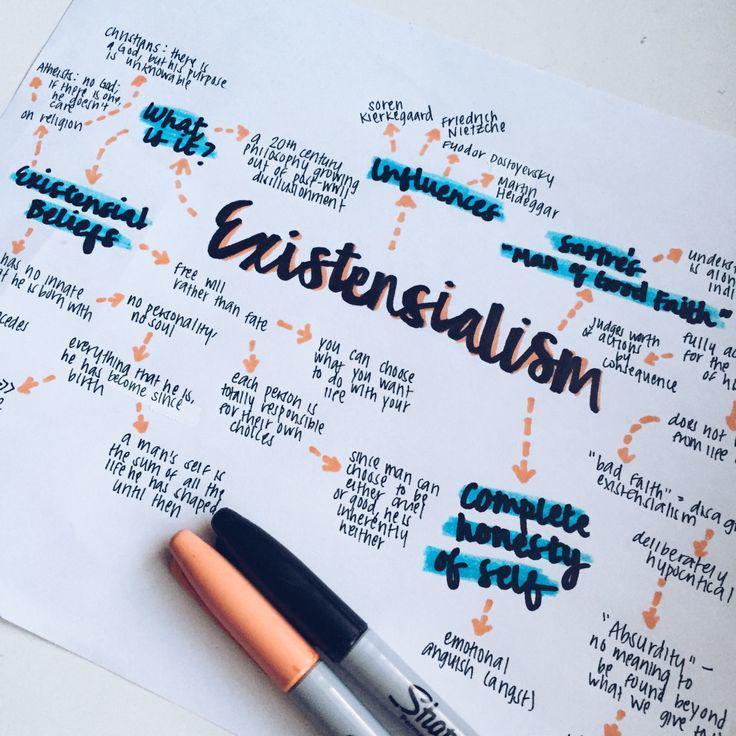 Christians: there is
a God, but his purpose
is unknowable
Atheists: no God;
if there is one,
he doesn't
care
on religion
What
is it?
a 20th century
philosophy growing
out of post-WWII
disillusionment
Soren
Kierkegaard
Friedrich
Nietzche
Fyodor Dostoyevsky
Martin
Heideggar
Influences
Existensial
Beliefs
Existensialism
Sartre's
"Man of Good Faith"
understa
is alon
indi
judges worth
of actions
by
consequence
fully ac
for the
of h
has no innate
at he is born with
no personality/
no soul
cedes
everything that he is,
he has become since
birth
a man's self is
the sum of all the
life he has shaped
until then
free will
rather than fate
you can choose
what you want
to do with your
life
each person is
totally responsible
for their own
choices
since man can
choose to be
either cruel
or good, he is
inherently
neither
Complete
honesty
of self
emotional
anguish (angst)
does not
from life
"bad faith" = disag
existensialism
deliberately
hypocritical
"Absurdity" –
no meaning to
be found beyond
what we give to
Shar